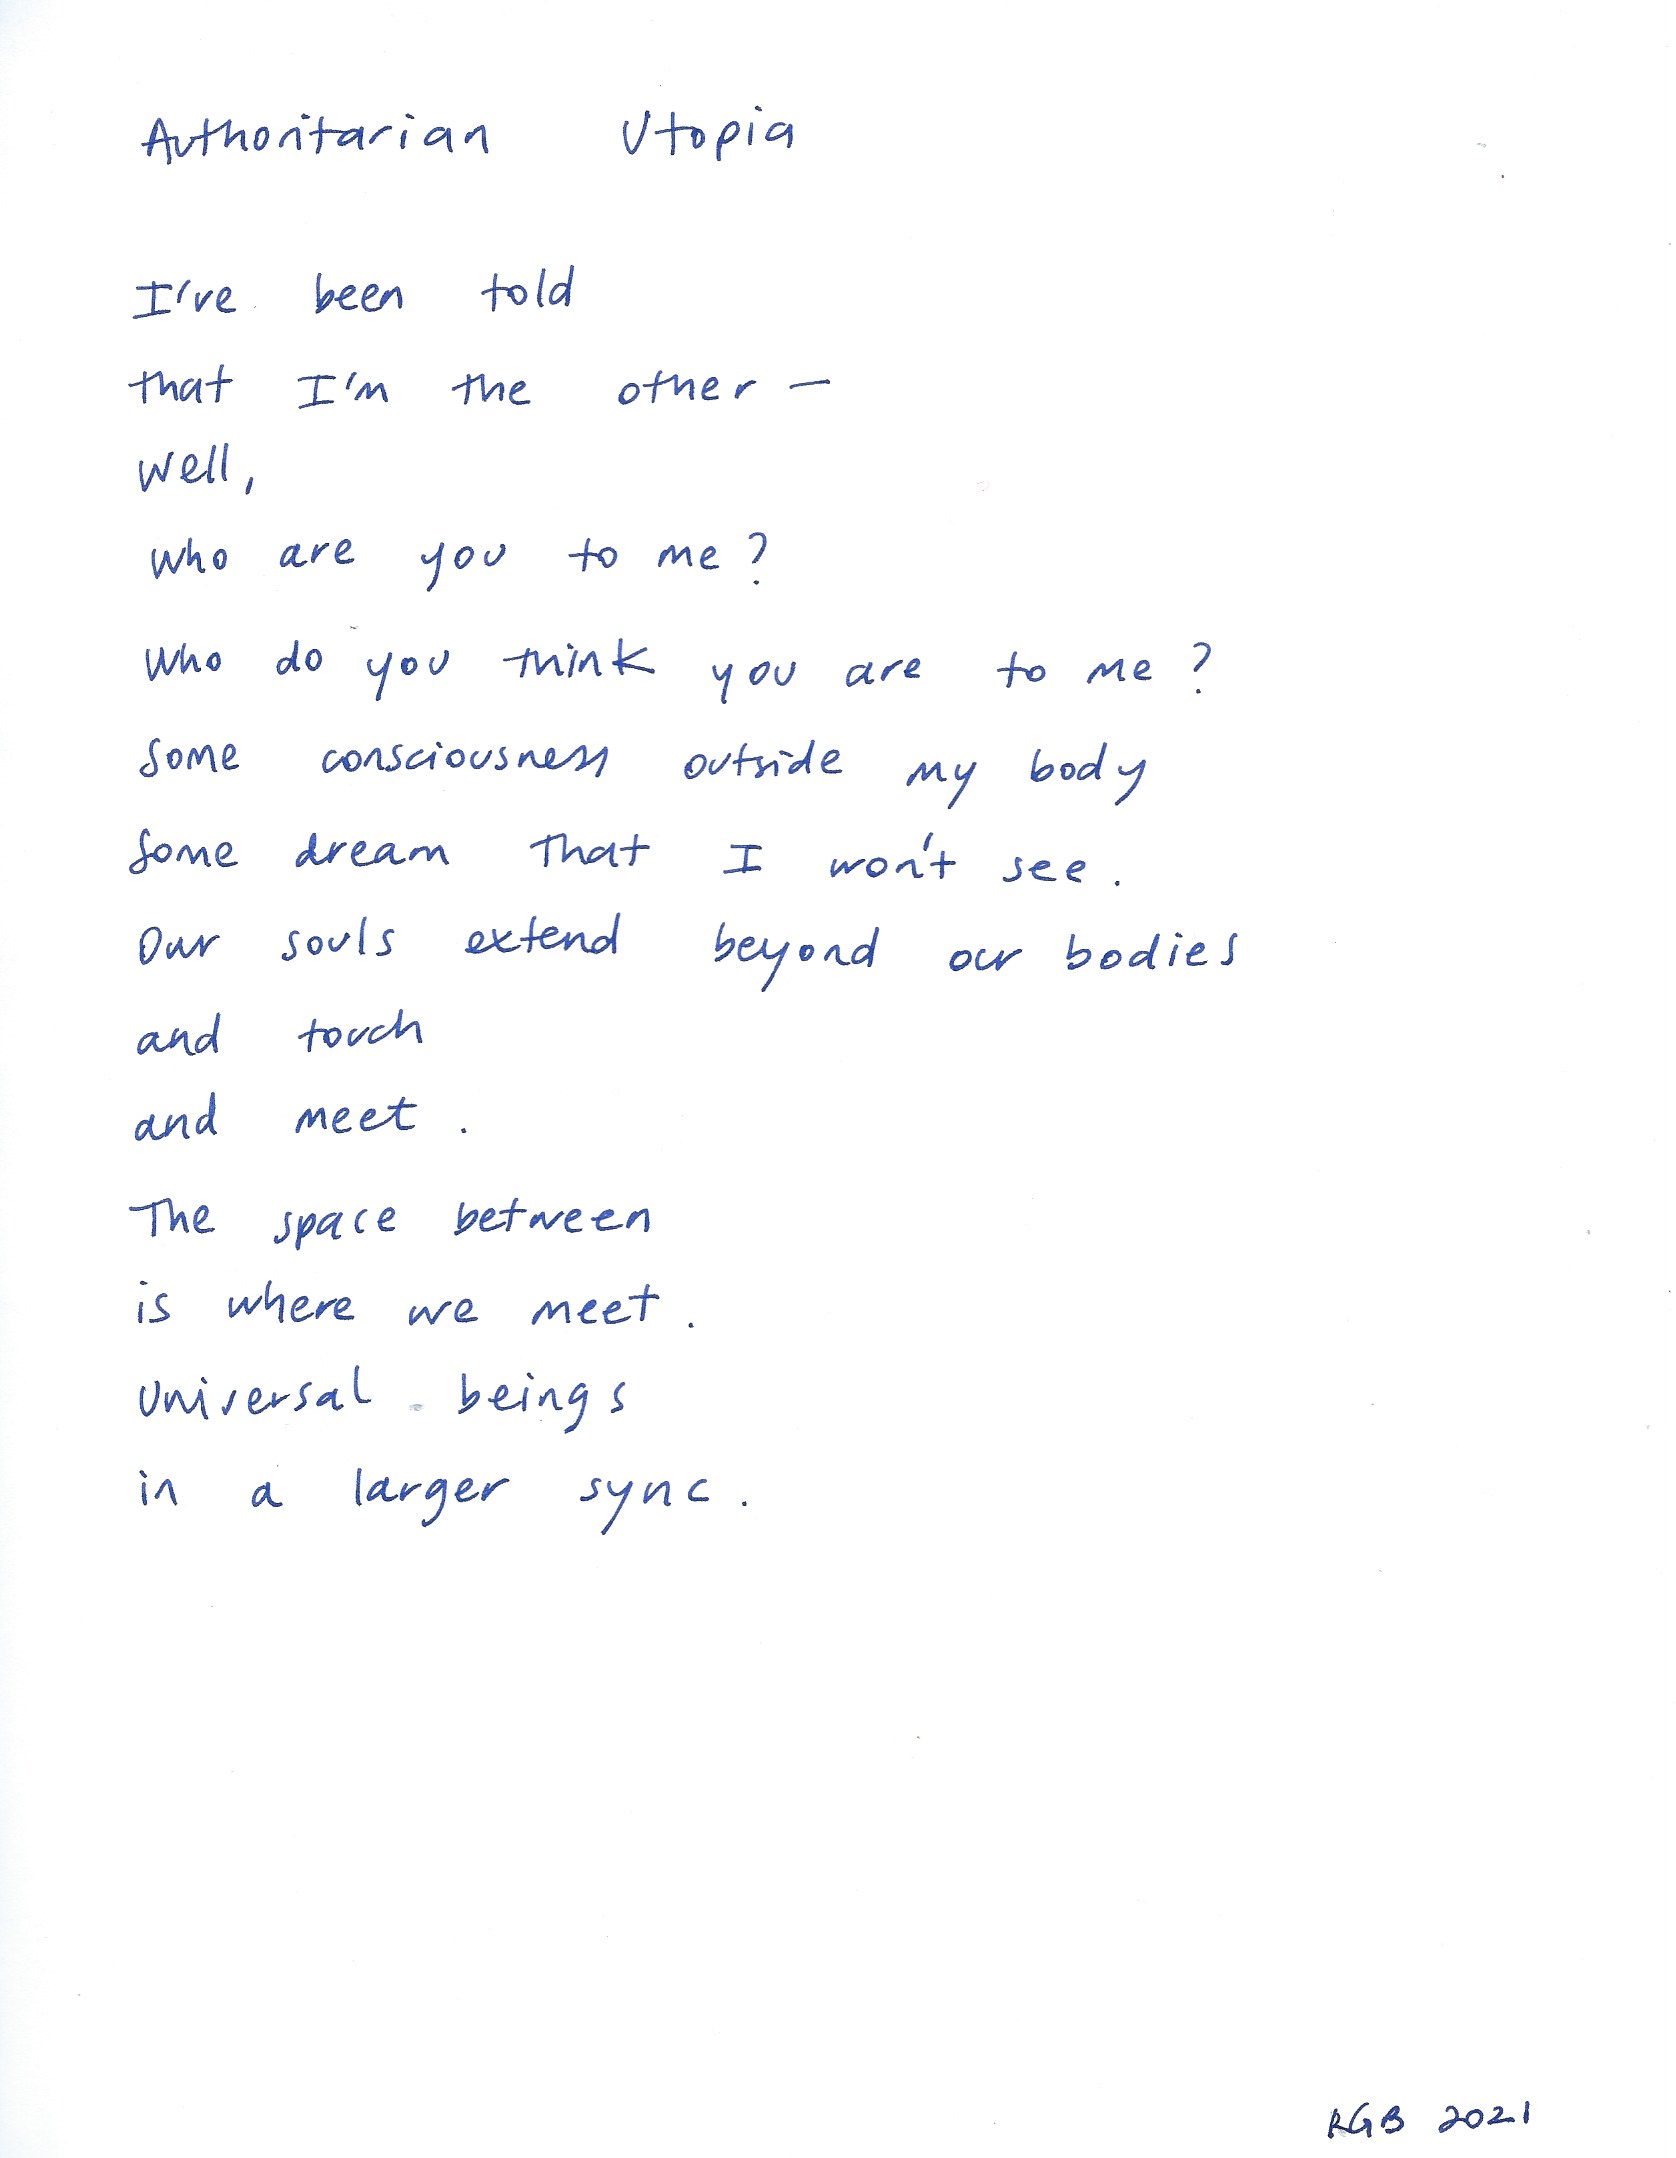 Authoritarian Utopia
I've been told
that I'm the other —
Well,
Who are you to me?
Who do you think you are to me?
Some consciousness outside my body
Some dream that I won't see.
Our souls extend beyond our bodies
and touch
and meet.
The space between
is where we meet.
Universal beings
in a larger sync.
RGB 2021